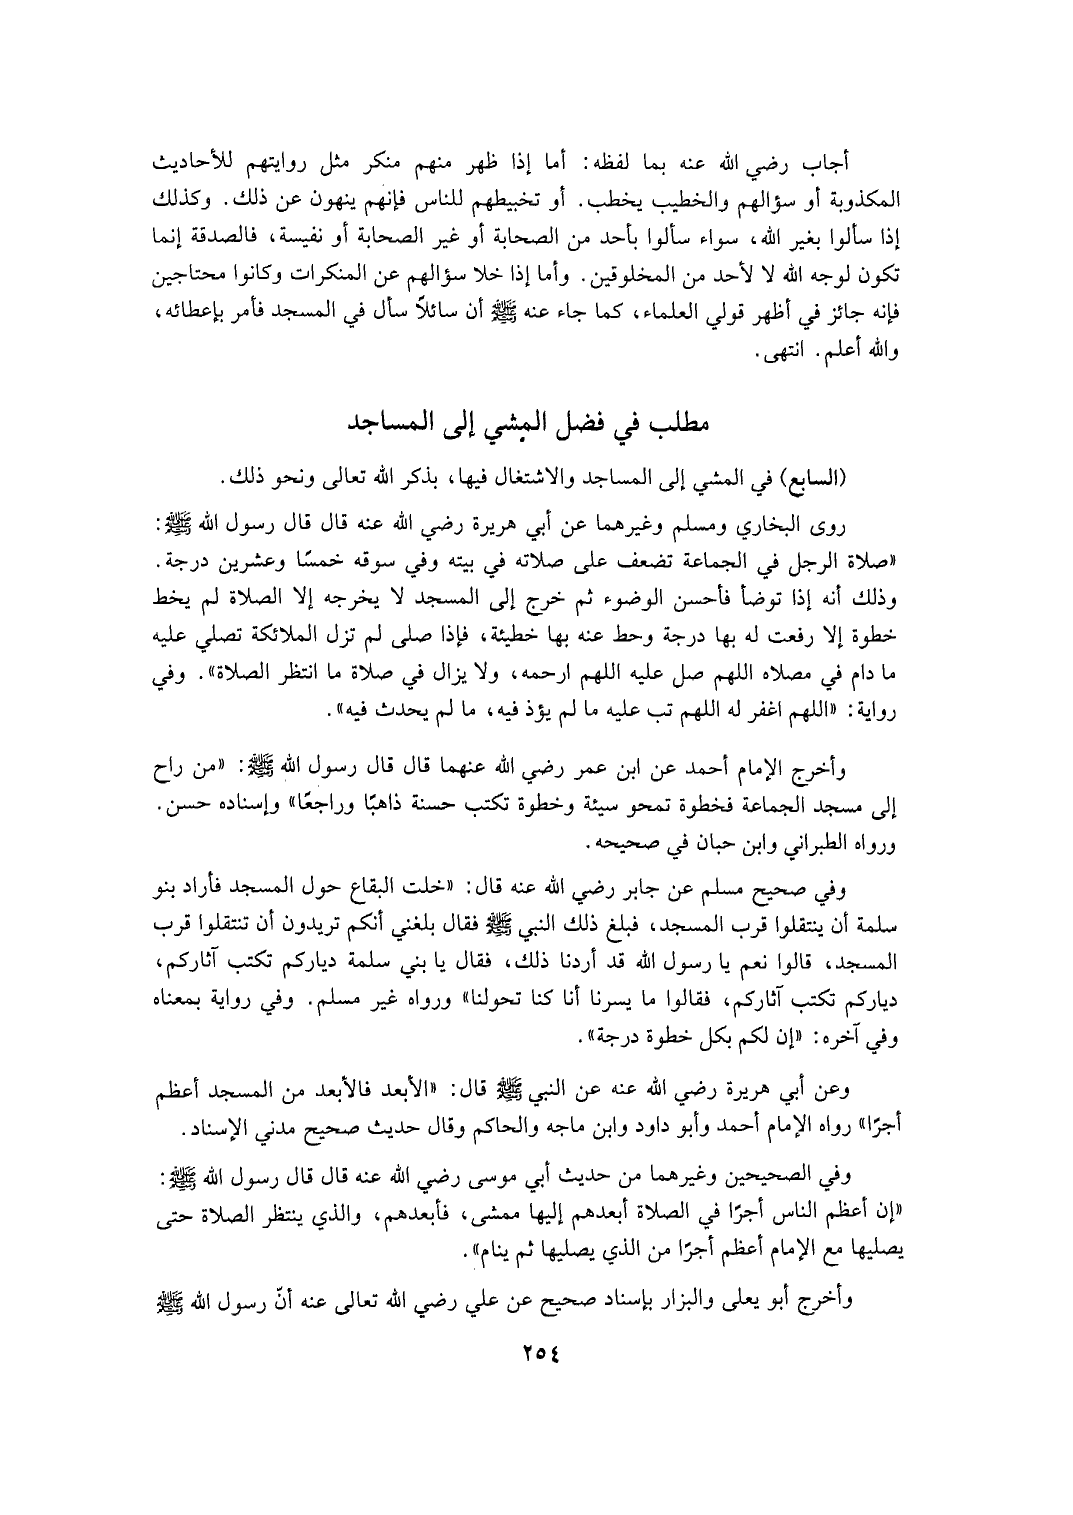 أجاب رضي الله عنه بما لفظه: أما إذا ظهر منهم منكر مثل روايتهم للأحاديث
المكذوبة أو سؤالهم والخطيب يخطب. أو تخبيطهم للناس فإنهم ينهون عن ذلك. وكذلك
إذا سألوا بغير الله، سواء سألوا بأحد من الصحابة أو غير الصحابة أو نفيسة، فالصدقة إنما
تكون لوجه الله لا لأحد من المخلوقين. وأما إذا خلا سؤالهم عن المنكرات وكانوا محتاجين
فإنه جائز في أظهر قولي العلماء، كما جاء عنه ﷺ أن سائلاً سأل في المسجد فأمر بإعطائه،
والله أعلم. انتهى.
مطلب في فضل المشي إلى المساجد
(السابع) في المشي إلى المساجد والاشتغال فيها، بذكر الله تعالى ونحو ذلك.
روى البخاري ومسلم وغيرهما عن أبي هريرة رضي الله عنه قال قال رسول الله ﷺ:
«صلاة الرجل في الجماعة تضعف على صلاته في بيته وفي سوقه خمسًا وعشرين درجة.
وذلك أنه إذا توضأ فأحسن الوضوء ثم خرج إلى المسجد لا يخرجه إلا الصلاة لم يخط
خطوة إلا رفعت له بها درجة وحط عنه بها خطيئة، فإذا صلى لم تزل الملائكة تصلي عليه
ما دام في مصلاه اللهم صل عليه اللهم ارحمه، ولا يزال في صلاة ما انتظر الصلاة». وفي
رواية: «اللهم اغفر له اللهم تب عليه ما لم يؤذ فيه، ما لم يحدث فيه».
وأخرج الإمام أحمد عن ابن عمر رضي الله عنهما قال قال رسول الله ﷺ: «من راح
إلى مسجد الجماعة فخطوة تمحو سيئة وخطوة تكتب حسنة ذاهبًا وراجعًا» وإسناده حسن.
ورواه الطبراني وابن حبان في صحيحه.
وفي صحيح مسلم عن جابر رضي الله عنه قال: «خلت البقاع حول المسجد فأراد بنو
سلمة أن ينتقلوا قرب المسجد، فبلغ ذلك النبي ﷺ فقال بلغني أنكم تريدون أن تنتقلوا قرب
المسجد، قالوا نعم يا رسول الله قد أردنا ذلك، فقال يا بني سلمة دياركم تكتب آثاركم،
دياركم تكتب آثاركم، فقالوا ما يسرنا أنا كنا تحولنا» ورواه غير مسلم. وفي رواية بمعناه
وفي آخره: «إن لكم بكل خطوة درجة».
وعن أبي هريرة رضي الله عنه عن النبي ﷺ قال: «الأبعد فالأبعد من المسجد أعظم
أجرًا» رواه الإمام أحمد وأبو داود وابن ماجه والحاكم وقال حديث صحيح مدني الإسناد.
وفي الصحيحين وغيرهما من حديث أبي موسى رضي الله عنه قال قال رسول الله ﷺ:
«إن أعظم الناس أجرًا في الصلاة أبعدهم إليها ممشى، فأبعدهم، والذي ينتظر الصلاة حتى
يصليها مع الإمام أعظم أجرًا من الذي يصليها ثم ينام».
وأخرج أبو يعلى والبزار بإسناد صحيح عن علي رضي الله تعالى عنه أنّ رسول الله ﷺ
٢٥٤